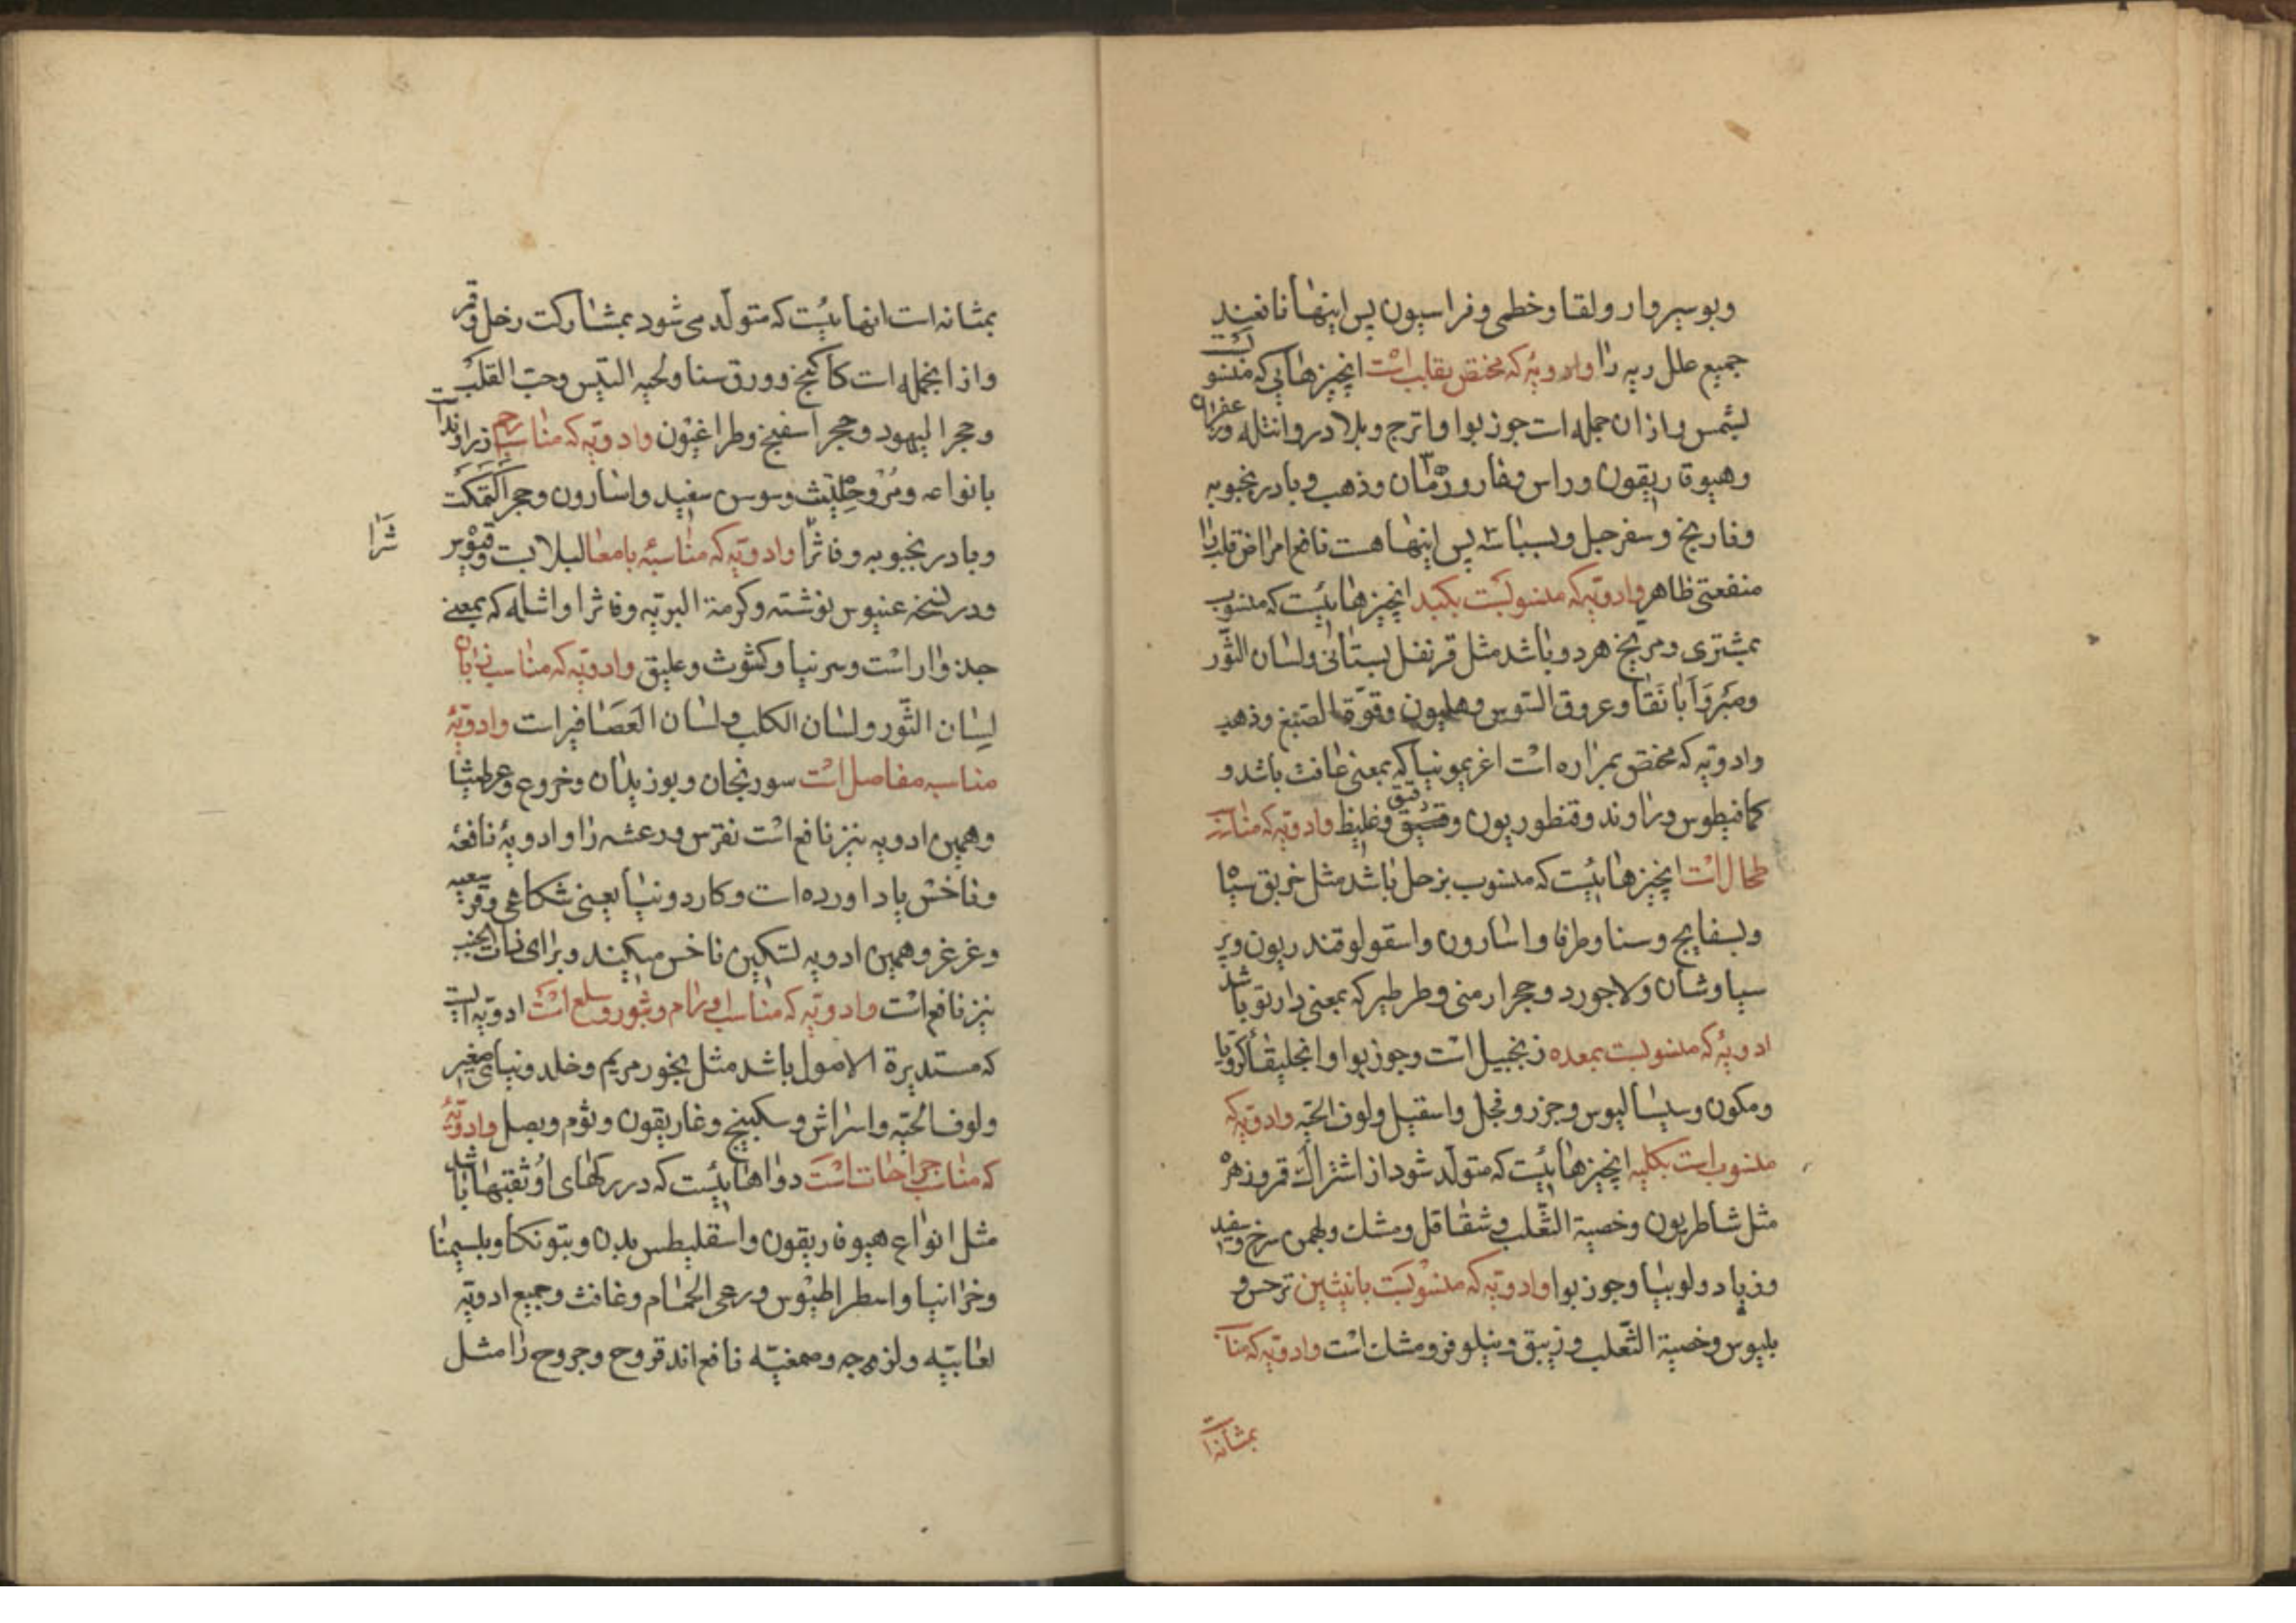 وبوسیر وار ولقا وخطمی وفراسیون پس اینها نافعند
جمیع علل ریه را وادویهٔ که مختص بقلب است انچیزهایی که منسو
بشمس واز ان جمله است جوز بوا واترج وبلادر وانتله وزعفران
وهیوفاریقون وراس وفار ورمان وذهب وبادرنجبویه
وفاریخ وسفرجل وبسباسه پس اینها هست نافع امراض قلب را
منفعتی ظاهر وادویهٔ که منسوبست بکبد انچیزهاییست که منسوب
بمشتری ومریخ هردو باشد مثل قرنفل بستانی ولسان الثور
وعروق السوس وهلیون وفوة الصبغ وذهب
وادویه که مختص بمراره است اغریمونیا که بمعنی غافث باشد و
کمافیطوس وراوند وقنطوریون رقیق وغلیظ وادویه که مناسب
طحال است انچیزهاییست که منسوب بزحل باشد مثل خربق سیا
وبسفایج وسنا وطرفا واسارون واسقولوقندریون وپر
سیاوشان ولاجورد وحجر ارمنی وطرطیر که بمعنی باشد
ادویهٔ که منسوبست بمعده زنجبیل است وجوز بوا وانجلیقا
ومکون وسیسالیوس وجزر وفجل واسقیل ولوف الحیه وادویه که
منسوب است بکلیه انچیزهاییست که متولد شود از اشتراک قمر وزهره
مثل شاطریون وخصیة الثعلب وشقاقل ومشک وبهمن سرخ وسفید
وزباد ولوبیا وجوز بوا وادویه که منسوبست بانثیین نرجس و
بلبوس وخصیة الثعلب وزیبق ونیلوفر ومشک است وادویه که منا
بمثانه است
بمثانه است انهاییست که متولد می شود بمشارکت زحل وقمر
واز انجمله است کاکنج وورق سنا ولحیه التیس وحب القلب
وحجر الیهود وحجر اسفنج وطراغیون وادویه که مناسب رحم زراوند است
بانواعه ومر وحلتیث وسوسن سفید واسارون وحجر
وبادرنجبویه وفاشرا وادویه که مناسبهٔ بامعا لبلابست
شرا
ودر نسخه عنبوس نوشته وکرمة البریه وفاشرا واشله که بمعنی
جدوار است وسرنیا وکشوث وعلیق وادویه که مناسب زبان
لسان الثور ولسان الکلب ولسان العصافیر است وادویهٔ
مناسبه مفاصل است سورنجان وبوزیدان وخروع
وهمین ادویه نیز نافع است نقرس ورعشه را وادویهٔ نافعه
وفاخس یاد اورده است وکاردونیا یعنی شکاعی
وغرغر وهمین ادویه تسکین ناخس میکنند وبرای ذات الجنب
نیز نافع است وادویه که مناسب اورام وبثور وسلع است ادویه ایست
که مستدیرة الاصول باشد مثل بخور مریم وخلدونیای صغیر
ولوف الحیه واسراش وسکبینج وغاریقون وثوم وبصل وادویهٔ
که مناسب جراحات است دواهاییست که در برکهای او ثقبها باشد
مثل انواع هیوفاریقون واسقلیطس بدن وبتونکا وبلسیمنا
وخرانیا واسطراطیوس ورعی الحمام وغافث وجمیع ادویه
لعابیه ولزوجه وصمغیه نافع اند قروح وجروح را مثل